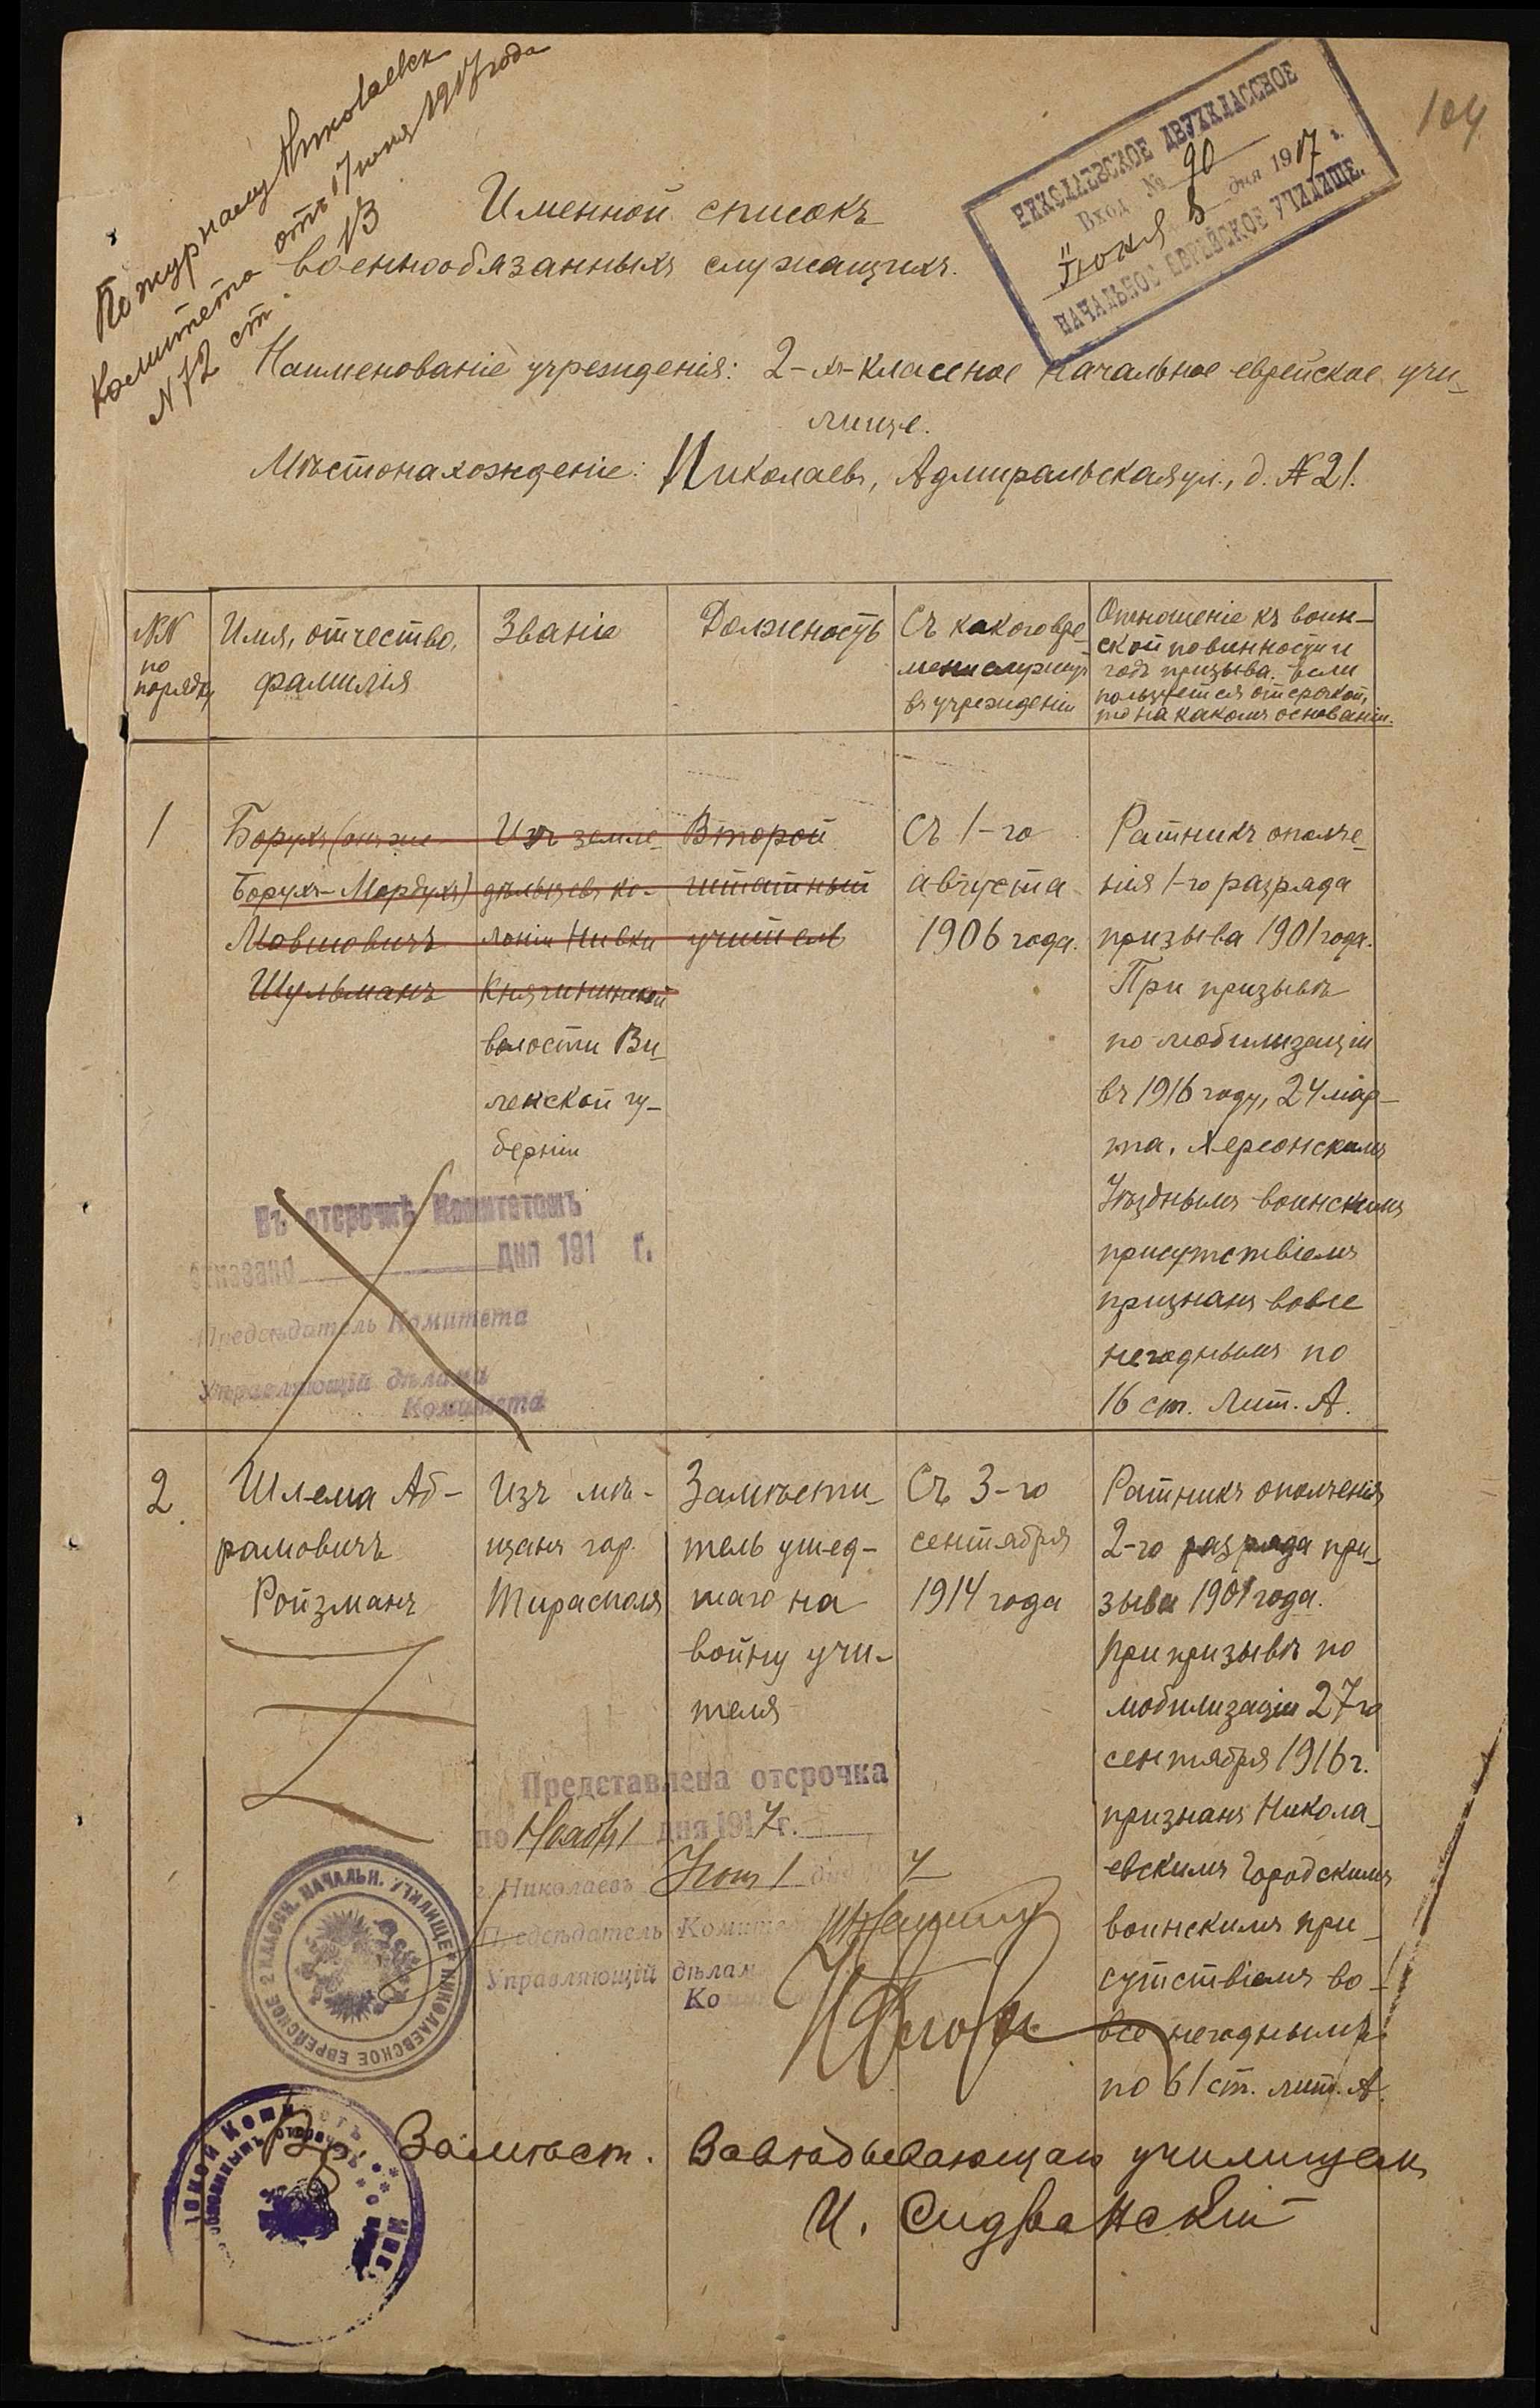 По журналу Николаевск
Комитета отъ 17 июня 1917 года
N 72 ст. 13
104
НИКОЛАЕВСКОЕ ДВУХКЛАССНОЕ
Вход № 90
Іюня 8 дня 1917 г.
НАЧАЛЬНОЕ ЕВРЕЙСКОЕ УЧИЛИЩЕ.
Именной списокъ
военнообязанныхъ служащихъ.
Наименованіе учрежденія: 2-хъ-классное начальное еврейское учи-
лище.
Мѣстонахожденіе: Николаевъ, Адмиральская ул., д. № 21.
NN
по
порядку
Имя, отчество,
фамилія
Званіе
Должность
Съ какого вре-
мени служитъ
въ учрежденіи
Отношеніе къ воин-
ской повинности и
годъ призыва. Если
пользуется отсрочкой,
то на какомъ основаніи.
1
Борухъ (онъ же
Борухъ-Мордухъ)
Мовшовичъ
Шульманъ
Изъ земле-
дѣльцевъ ко-
лоніи Нивки
Княгининской
волости Ви-
ленской гу-
берніи
Второй
штатный
учитель
Съ 1-го
августа
1906 года.
Ратникъ ополче-
нія 1-го разряда
призыва 1901 года.
При призывѣ
по мобилизаціи
въ 1916 году, 24 мар-
та, Херсонскимъ
Уѣзднымъ воинскимъ
присутствіемъ
признанъ вовсе
негоднымъ по
16 ст. Лит. А.
Въ отсрочкѣ Комитетомъ
отказано дня 191 г.
Предсѣдатель Комитета
Управляющій дѣлами
Комитета
2
Шлема Аб-
рамовичъ
Ройзманъ
Изъ мѣ-
щанъ гор.
Тирасполя
Замѣсти-
тель ушед-
шаго на
войну учи-
теля
Съ 3-го
сентября
1914 года
Ратникъ ополченія
2-го разряда при-
зыва 1901 года.
При призывѣ по
мобилизаціи 27-го
сентября 1916 г.
признанъ Никола-
евскимъ Городскимъ
воинскимъ при-
сутствіемъ во-
все негоднымъ
по 61 ст. лит. А.
Представлена отсрочка
по Ноябр 1 дня 1917 г.
г. Николаевъ 1 дня 7
Предсѣдатель Комитета
Управляющій дѣлам
Ко
НИКОЛАЕВСКОЕ ЕВРЕЙСКОЕ 2 КЛАССН. НАЧАЛЬН. УЧИЛИЩЕ
Вр. Замѣст. Завѣдывающаго училищемъ